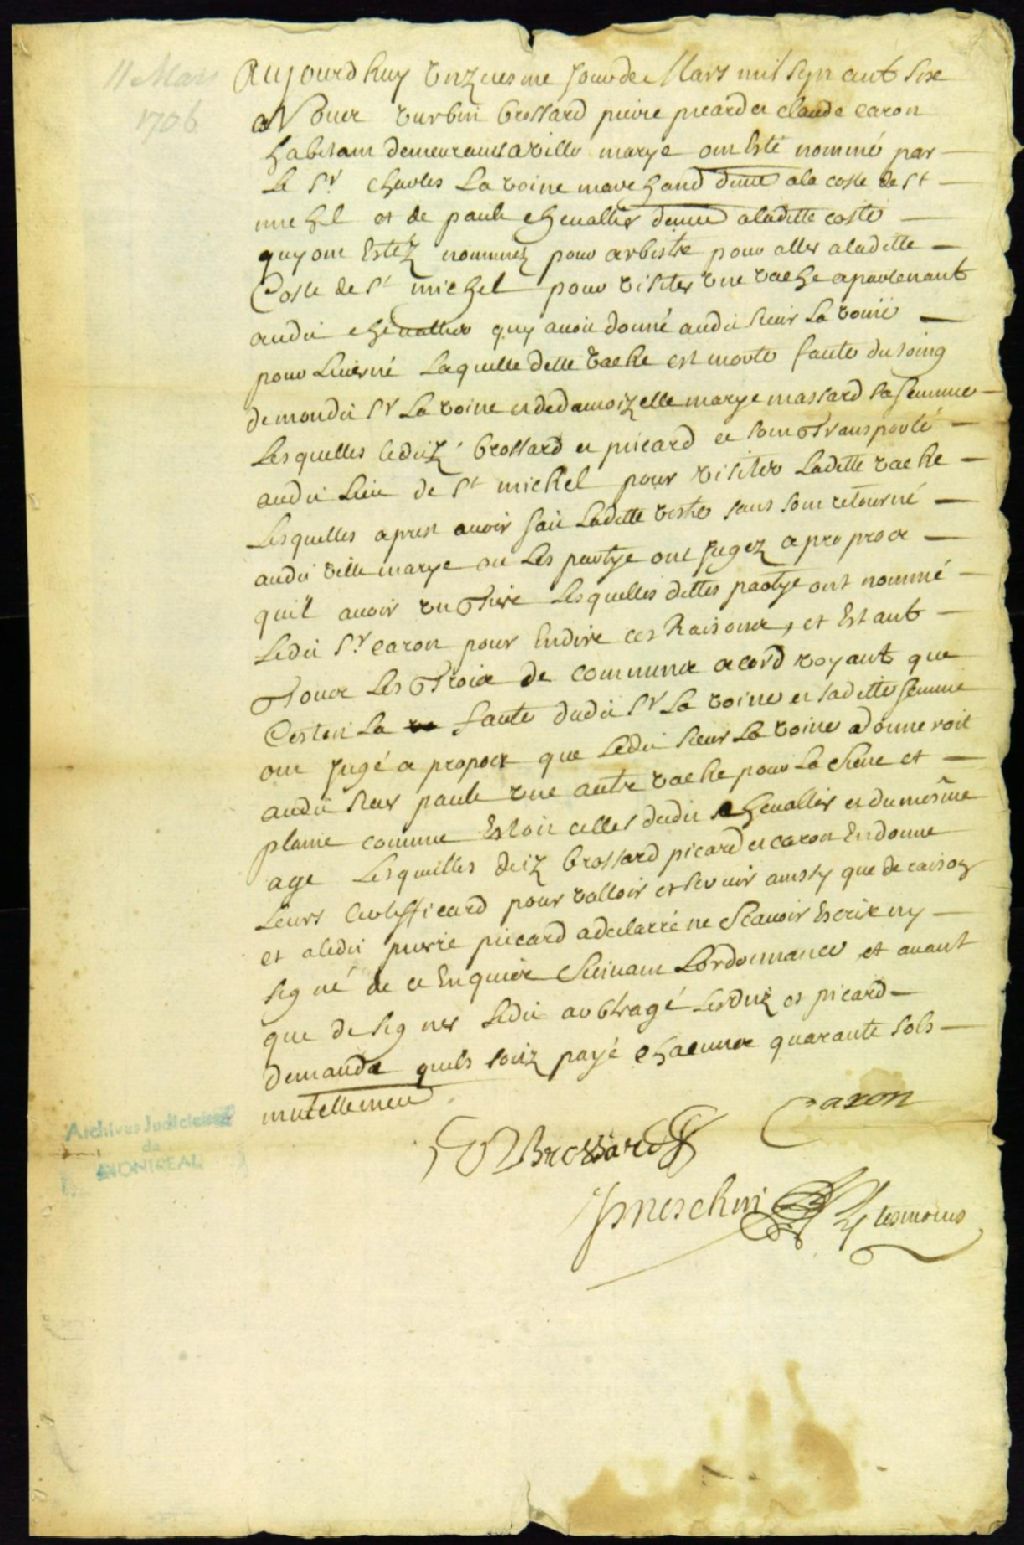 11 Mars
1706
Aujourdhuy unziesme Jour de Mars mil sept cent six
Nous urbin brossard pierre picard et claude caron
habitant demeurants a ville marye ont esté nommé par
Le Sr charles La voine marchand demt a la coste de St
michel et de paule chevallier demt a ladette coste
quy ont Estez nommez pour arbistre pour aller a ladette
Coste de St michel pour visiter une vache apartenant
audit chevallier quy avoit donné audit sieur La voine
pour hiverné Laquelle dette vache est morte faute du soing
de mondit Sr La voine et de damoizelle marye massard sa femme
Lesquelles leditz brossard et picard ce sont transporté
audit Lieu de St michel pour visiter Ladette vache
Lesquelles apres avoir fait Ladette visite sans sont retourné
audit ville marye ou Les partye ont Jugez a propros
quil avoir un tiers Lesquelles dittes partye ont nommé
Ledit Sr caron pour Endire ces Raisons, et Estant
Tous Les trois de commune acord voyant que
Cestoit La faute dudit Sr La voine et sadette femme
ont Jugé a propos que Ledit sieur La voine donneroit
audit sieur paule une autre vache pour La Siene et
plaine comme Estoit celles dudit chevallier et du mesme
age Lesquelles ditz brossard picard et caron Endonne
Leurs Certifficard pour valloir et servir ainssy que de raison
et a ledit pierre picard a declarré ne scavoir Escrire ny
signé de ce Enquier suivant Lordonnance et avant
que de signer Ledit arbitragé Lesditz et picard
demande quils soitz payé chacune quarante sols
mutellement.
Brossard
Caron
Lesmoins
Archives Judiciaires
de
MONTREAL